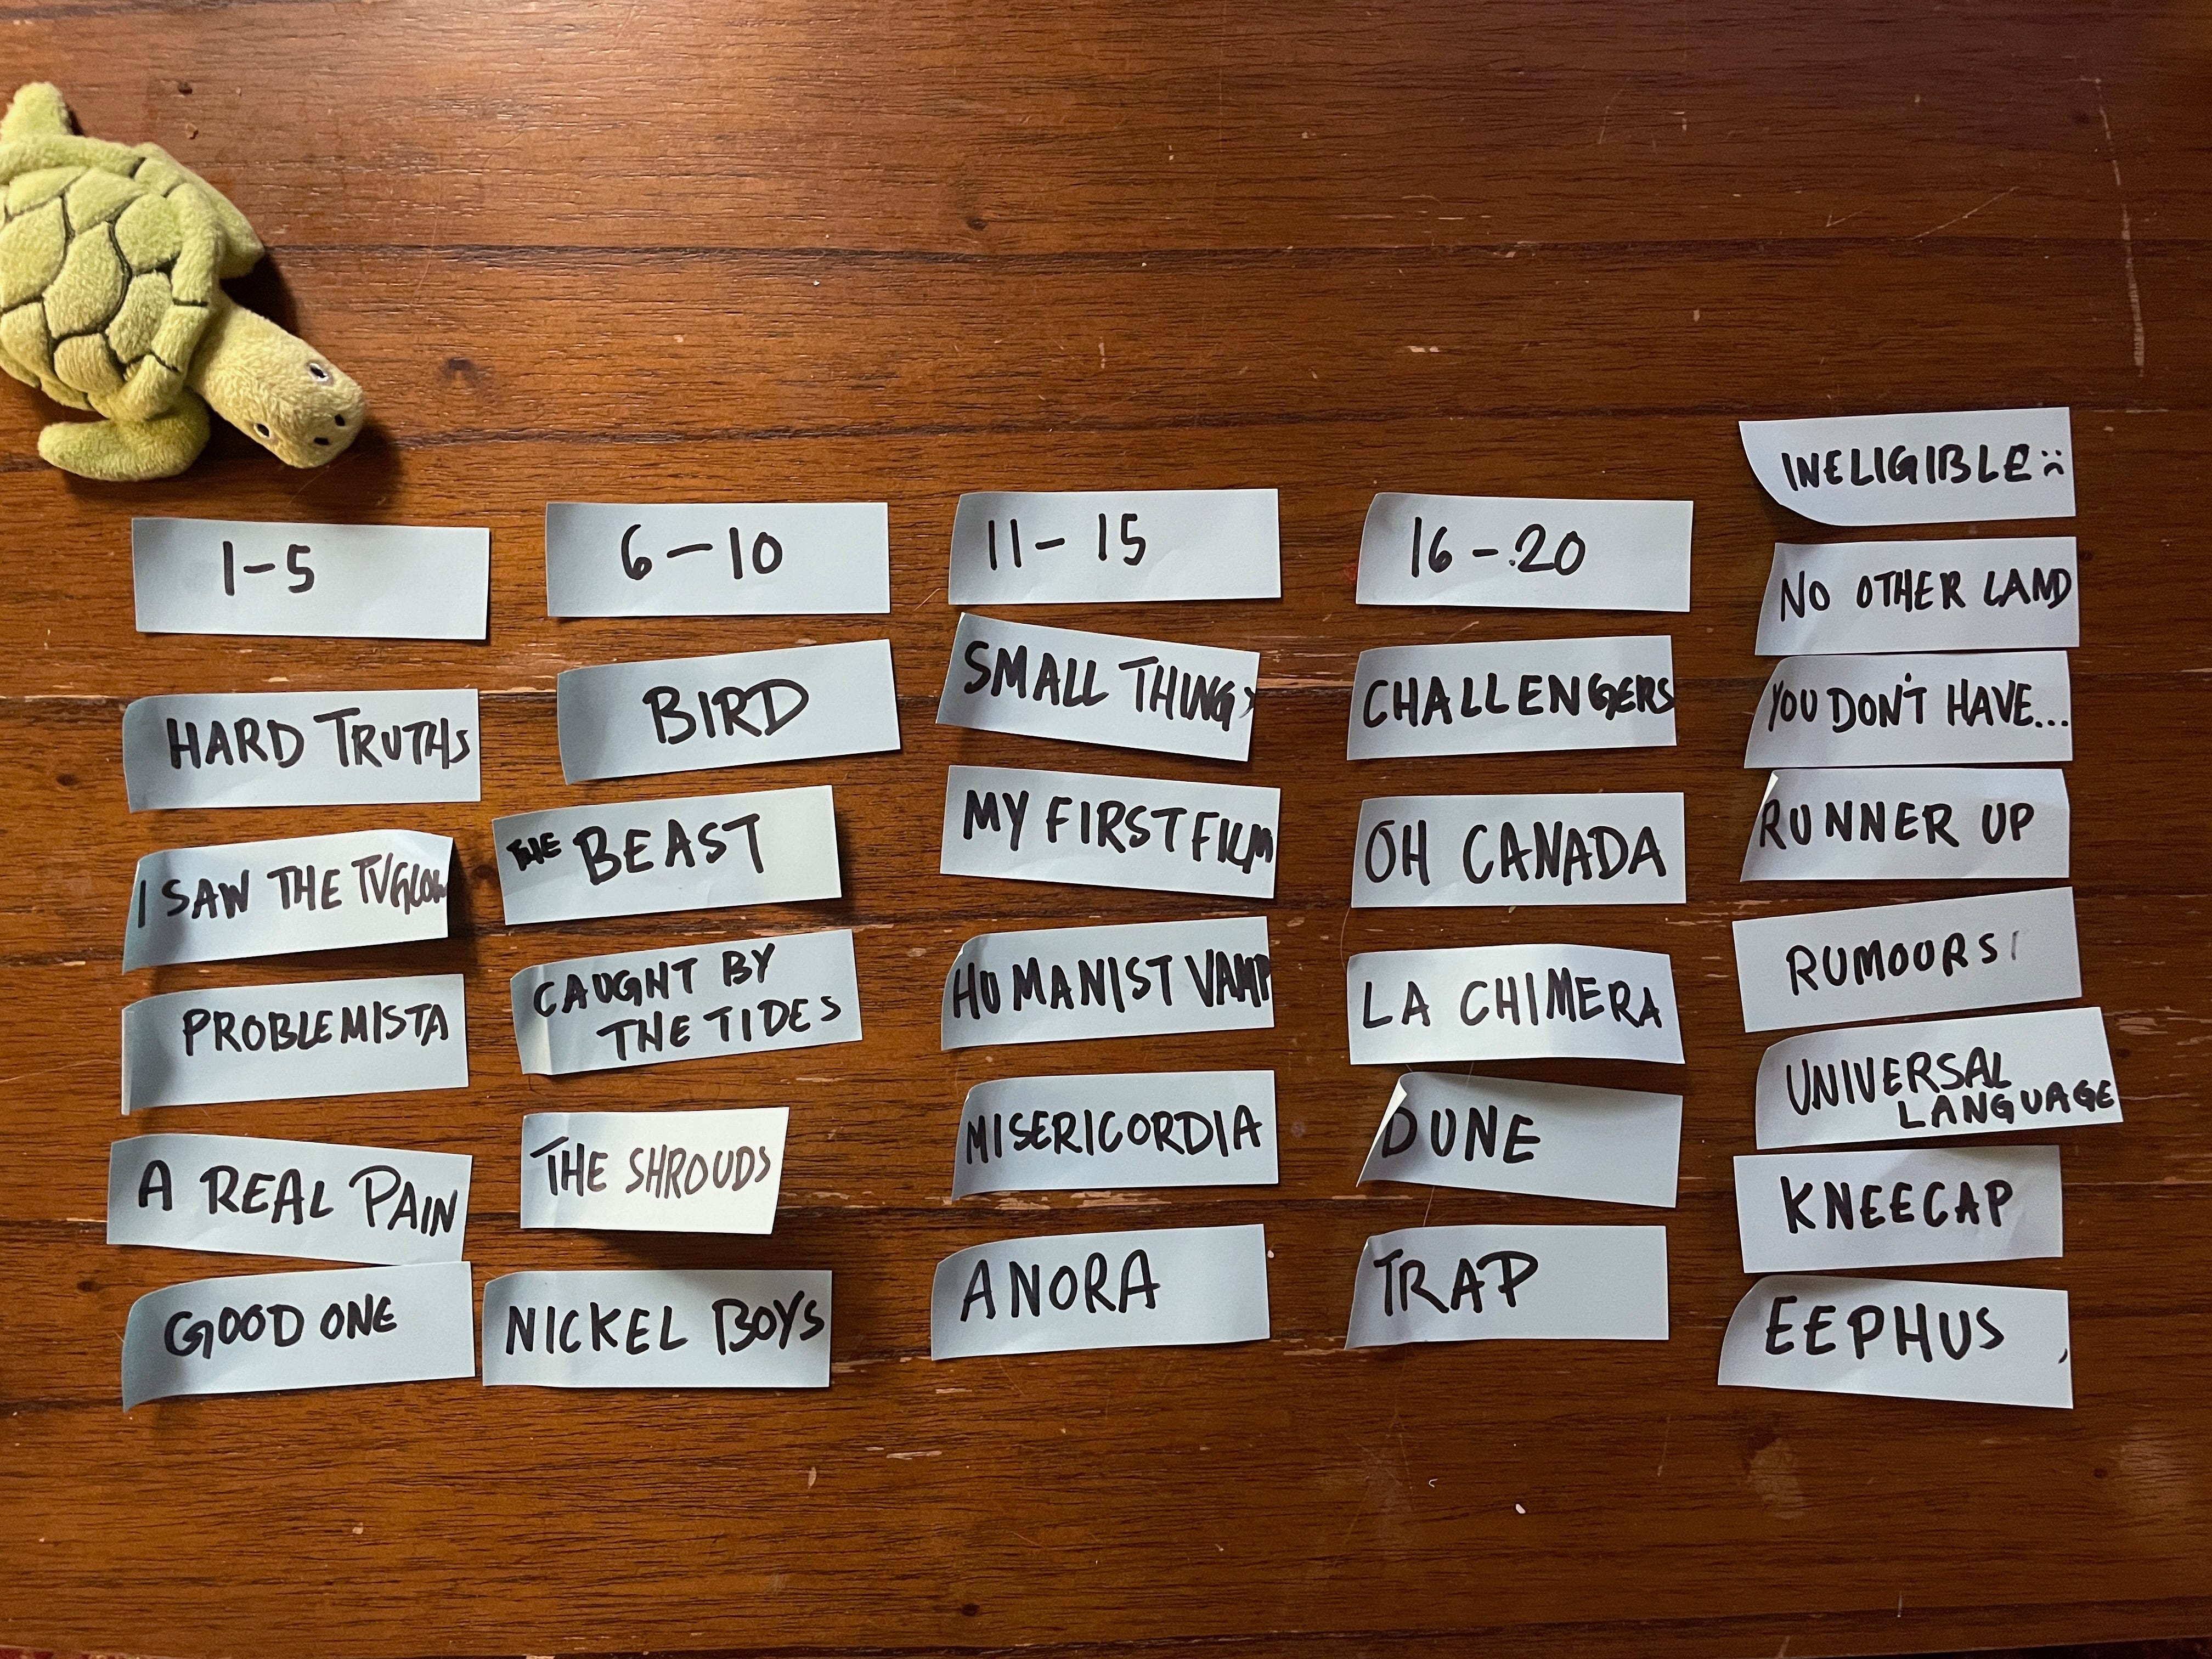 1-5
HARD TRUTHS
I SAW THE TV GLOW
PROBLEMISTA
A REAL PAIN
GOOD ONE
6-10
BIRD
THE BEAST
CAUGHT BY
THE TIDES
THE SHROUDS
NICKEL BOYS
11-15
SMALL THINGS
MY FIRST FILM
HUMANIST VAMP
MISERICORDIA
ANORA
16-20
CHALLENGERS
OH CANADA
LA CHIMERA
DUNE
TRAP
INELIGIBLE :(
NO OTHER LAND
YOU DON'T HAVE...
RUNNER UP
RUMOURS
UNIVERSAL
LANGUAGE
KNEECAP
EEPHUS